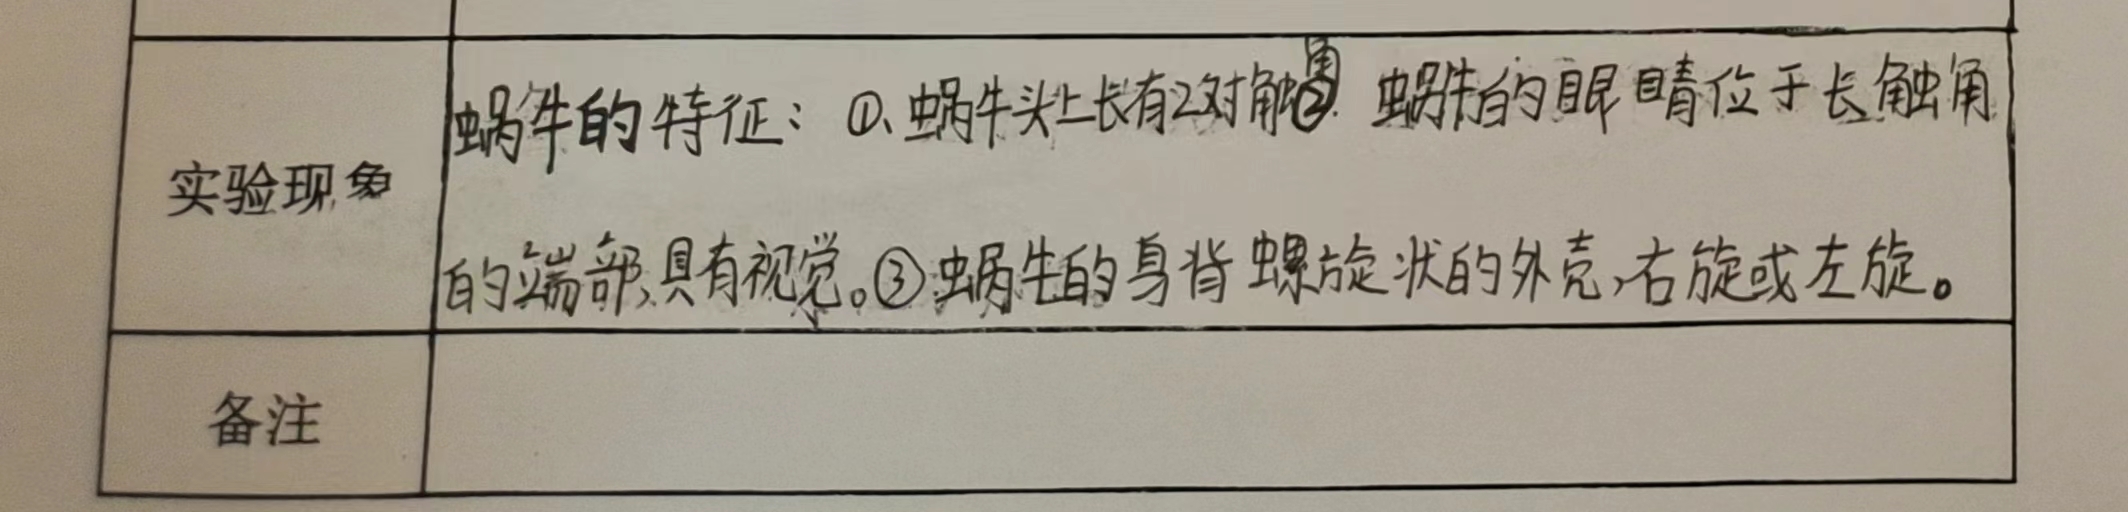 实验现象
蜗牛的特征：①、蜗牛头上长有2对触角② 蜗牛的眼睛位于长触角
的端部,具有视觉。③蜗牛的身背螺旋状的外壳,右旋或左旋。
备注